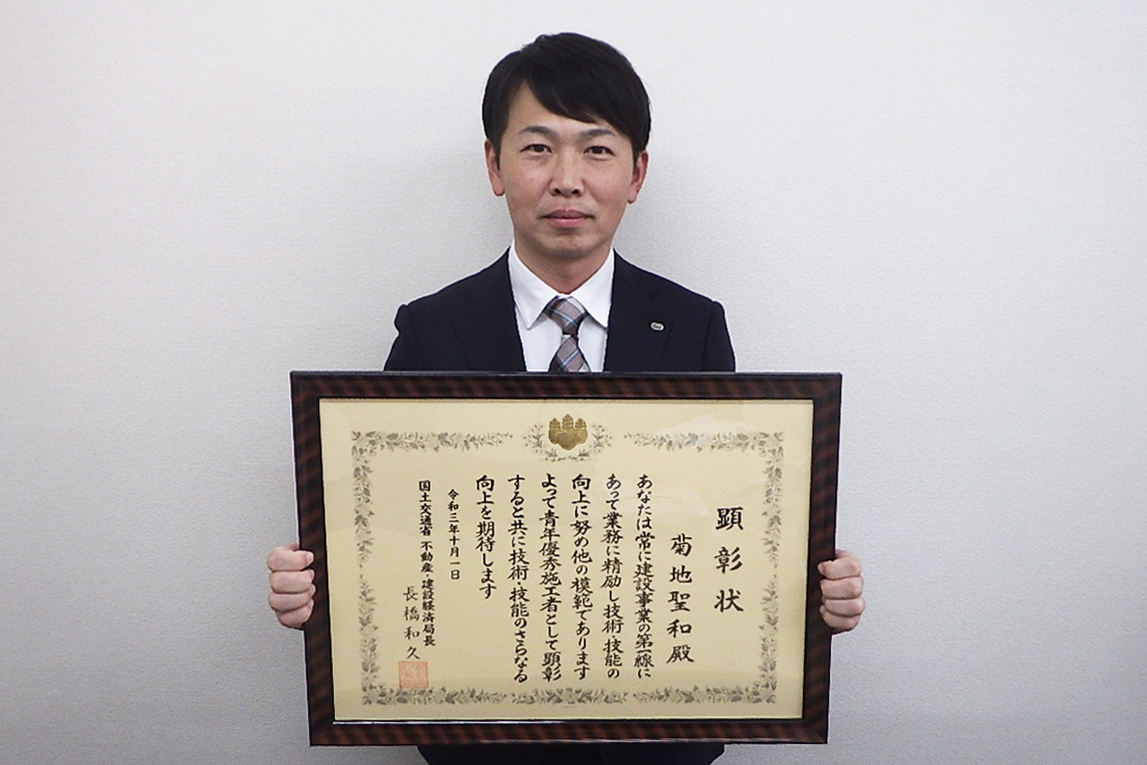 顕彰状
菊地聖和殿
あなたは常に建設事業の第一線に
あって業務に精励し技術・技能の
向上に努め他の模範であります
よって青年優秀施工者として顕彰
すると共に技術・技能のさらなる
向上を期待します
令和三年十月一日
国土交通省 不動産・建設経済局長
長橋和久